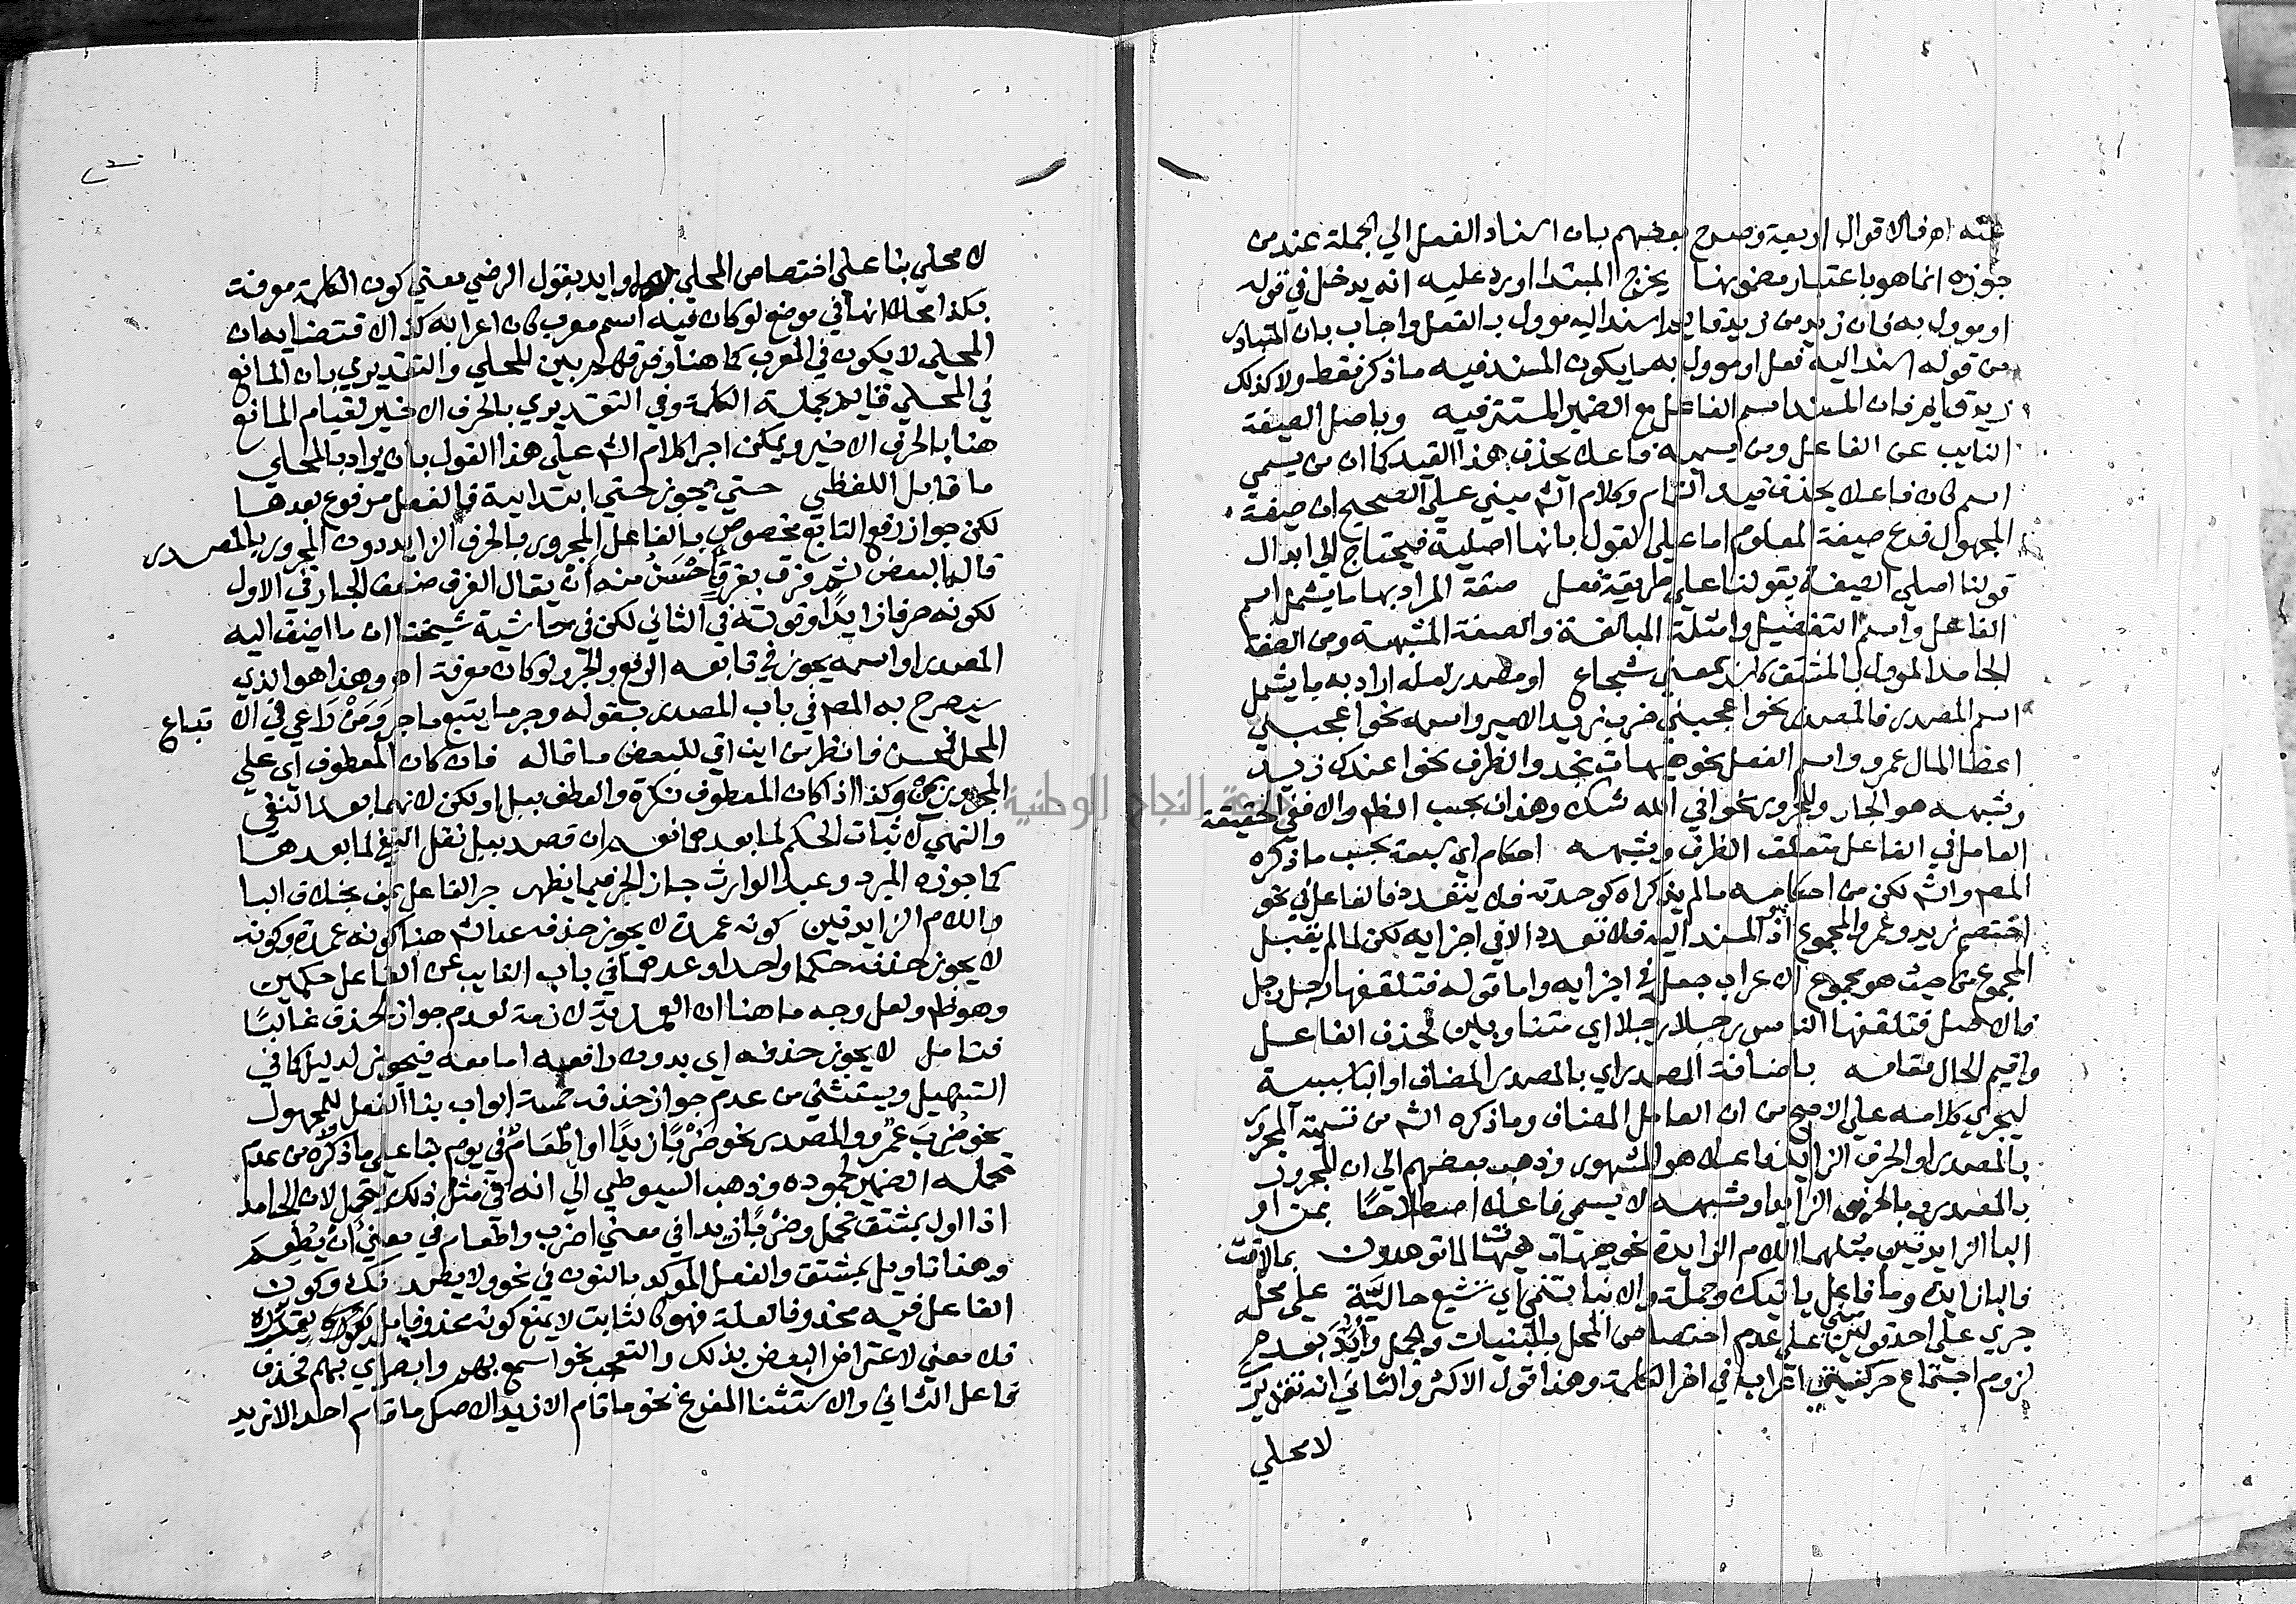 عنه اه فالاقوال اربعة وصرح بعضهم بان اسناد الفعل الي الجملة عند من
جوزه انما هو باعتبار مضمونها يخرج المبتدا اورد عليه انه يدخل في قوله
او موول به فان زيد من زيد قايم اسند اليه موول بالفعل واجاب بان المتبادر
من قوله اسند اليه فعل او موول به ما يكون المسند فيه ما ذكر فقط ولا كذلك
زيد قايم فان المسند اسم الفاعل مع الضمير المستتر فيه وباصل الصيغة
النايب عن الفاعل ومن يسميه فاعلا يحذف هذا القيد كما ان من يسمي
اسم كان فاعلا يحذف قيد التام وكلام الشم مبني علي الصحيح ان صيغة
المجهول فرع صيغة المعلوم اما علي القول بانها اصلية فيحتاج الي ابدال
قولنا اصلي الصيغة بقولنا علي طريقة فعل صفة المراد بها ما يشمل اسم
الفاعل واسم التفضيل وامثلة المبالغة والصفة المشبهة ومن الصفة
الجامد الموول بالمشتق كاسد بمعني شجاع او مصدر لعله اراد به ما يشمل
اسم المصدر فالمصدر نحو اعجبني ضرب زيد الامير واسمه نحو اعجبني
اعطا المال عمرو واسم الفعل نحو هيهات نجد والظرف نحو اعندك زيد
وشبهه هو الجار والمجرور نحو افي الله شك وهذان بحسب الظم والا ففي الحقيقة
العامل في الفاعل متعلق الظرف وشبهه احكام اي سبعة بحسب ما ذكره
المصم والشم لكن من احكامه ما لم يذكراه كوحدته فلا يتعدد فالفاعل في نحو
اختصم زيد وعمرو المجموع اذ المسند اليه فلا تعدد الا في اجزايه لكن لما لم يقبل
المجموع من حيث هو مجموع الاعراب جعل في اجزايه واما قوله فتلقفها رجل رجل
فالاصل فتلقفها الناس رجلا رجلا اي متناوبين فحذف الفاعل
واقيم الحال مقامه باضافة المصدر اي بالمصدر المضاف او البا سببية
ليجري كلامه علي الاصح من ان العامل المضاف وما ذكره الشم من تسمية المجرور
بالمصدر او الحرف الزايد فاعلا هو المشهور وذهب بعضهم الي ان المجرور
بالمصدر وبالحرف الزايد او شبهه لا يسمي فاعلا اصطلاحا بمن او
البا الزايدتين مثلهما اللام الزايدة نحو هيهات هيهات لما توعدون بما لاقت
فالبا زايدة وما فاعل ياتيك وجملة والانبا تنمي اي تشيع حالية علي محله
جري علي احد قولين مبني علي عدم اختصاص المحل بالمبنيات والجمل وايد بعدم
لزوم اجتماع حركتي اعراب في اخر الكلمة وهذا قول الاكثر والثاني انه تقديري
لا محلي
لا محلي بنا علي اختصاص المحلي بهما وايد بقول الرضي معني كون الكلمة مرفوعة
بكذا محلا انها في موضع لو كان فيه اسم معرب كان اعرابه كذا لاقتضايه ان
المحلي لا يكون في المعرب كما هنا وفرقهم بين المحلي والتقديري بان المانع
في المحلي قايم بجملة الكلمة وفي التقديري بالحرف الاخير لقيام المانع
هنا بالحرف الاخير ويمكن اجرا كلام الشم علي هذا القول بان يراد بالمحلي
ما قابل اللفظي حتي تجوز لحتي ابتدايية فالفعل مرفوع بعدها
لكن جواز رفع التابع مخصوص بالفاعل المجرور بالحرف الزايد دون المجرور بالمصدر
قال البعض ثم فرق بفرق احسن منه ان يقال الفرق ضعف الجار في الاول
لكونه حرفا زايدا وقوته في الثاني لكن في حاشية شيخنا ان ما اضيف اليه
المصدر او اسمه يجوز في تابعه الرفع والجر ولو كان معرفة اه وهذا هو الذي
سيصرح به المصم في باب المصدر بقوله وجر ما يتبع ما جر ومن راعي في الاتباع
المحل فحسن فانظر من اين اتي للبعض ما قاله فان كان المعطوف اي علي
المجرور بمن وكذا اذا كان المعطوف نكرة والعطف ببل او لكن لانهما بعد النفي
والنهي لاثبات الحكم لما بعدهما نعم ان قصد ببل نقل النفي لما بعدها
كما جوزه المبرد وعبد الوارث جاز الجر فيما يظهر جر الفاعل بمن بخلاف البا
واللام الزايدتين كونه عمدة لا يجوز حذفه عد الشم هنا كونه عمدة وكونه
لا يجوز حذفه حكما واحدا وعدهما في باب النايب عن الفاعل حكمين
وهو ظم ولعل وجه ما هنا ان العمدية لازمة لعدم جواز الحذف غالبا
فتامل لا يجوز حذفه اي بدون رافعه اما معه فيجوز لدليل كما في
التسهيل ويستثني من عدم جواز حذفه خمسة ابواب بنا الفعل للمجهول
نحو ضرب عمرو والمصدر نحو ضربا زيدا او اطعام في يوم بنا علي ما ذكره من عدم
تحمله الضمير لجموده وذهب السيوطي الي انه في مثل ذلك يتحمل لان الجامد
اذا اول بمشتق تحمل وضربا زيدا في معني اضرب واطعام في معني ان يطعم
وهذا تاويل بمشتق والفعل الموكد بالنون في نحو ولا يصدنك وكون
الفاعل فيه محذوفا لعلة فهو كالثابت لا يمنع كونه محذوفا
فلا معني لاعتراض البعض بذلك والتعجب نحو اسمع بهم وابصر اي بهم فحذف
فاعل الثاني والاستثنا المفرغ نحو ما قام الا زيد الاصل ما قام احد الا زيد
جامعة النجاح الوطنية